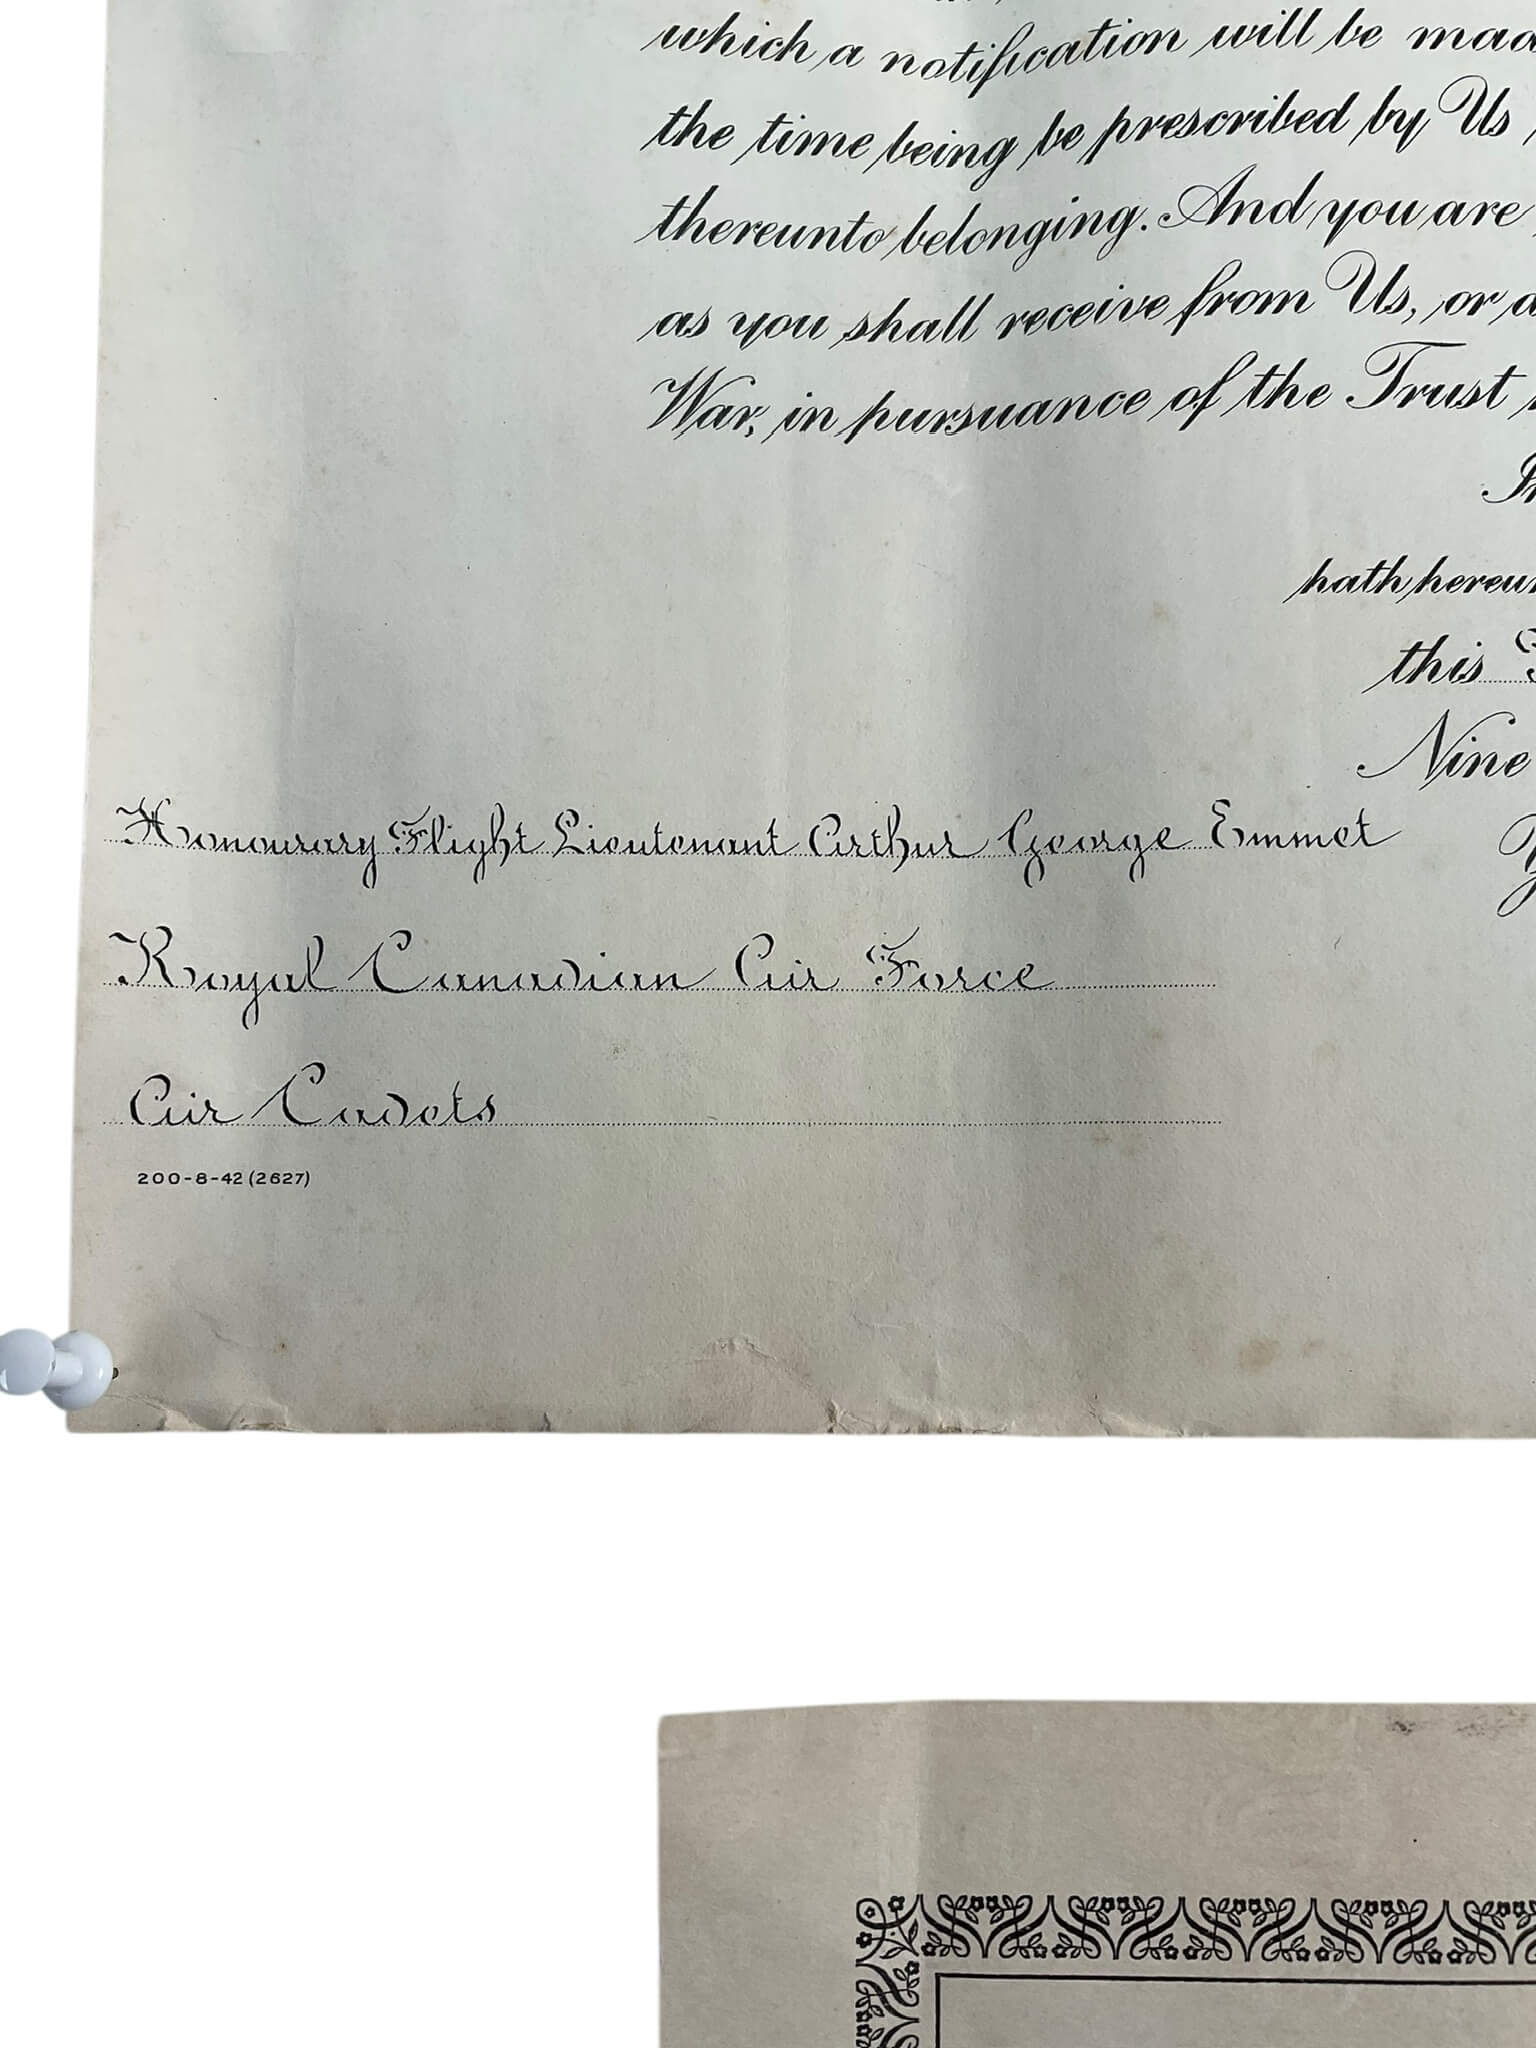 which a notification will be
the time being be prescribed by Us
thereunto belonging. And you are
as you shall receive from Us, or
War, in pursuance of the Trust
this
Nine
Honourary Flight Lieutenant Arthur George Emmet
Royal Canadian Air Force
Air Cadets
200-8-42 (2627)